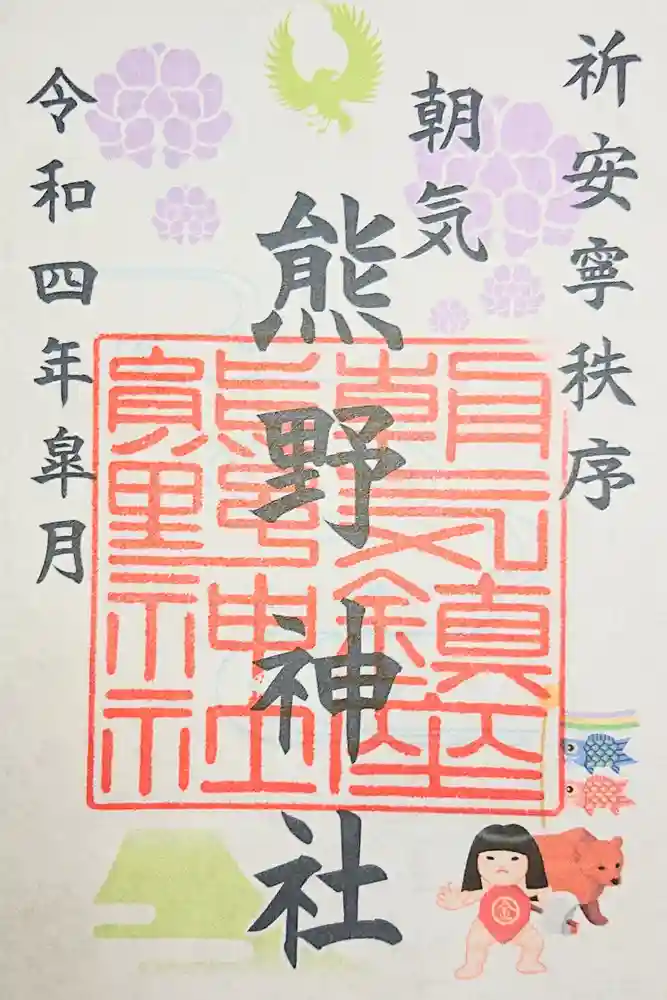 祈安寧秩序
朝気
熊野神社
令和四年皐月
朝気鎮座
熊野神社
金